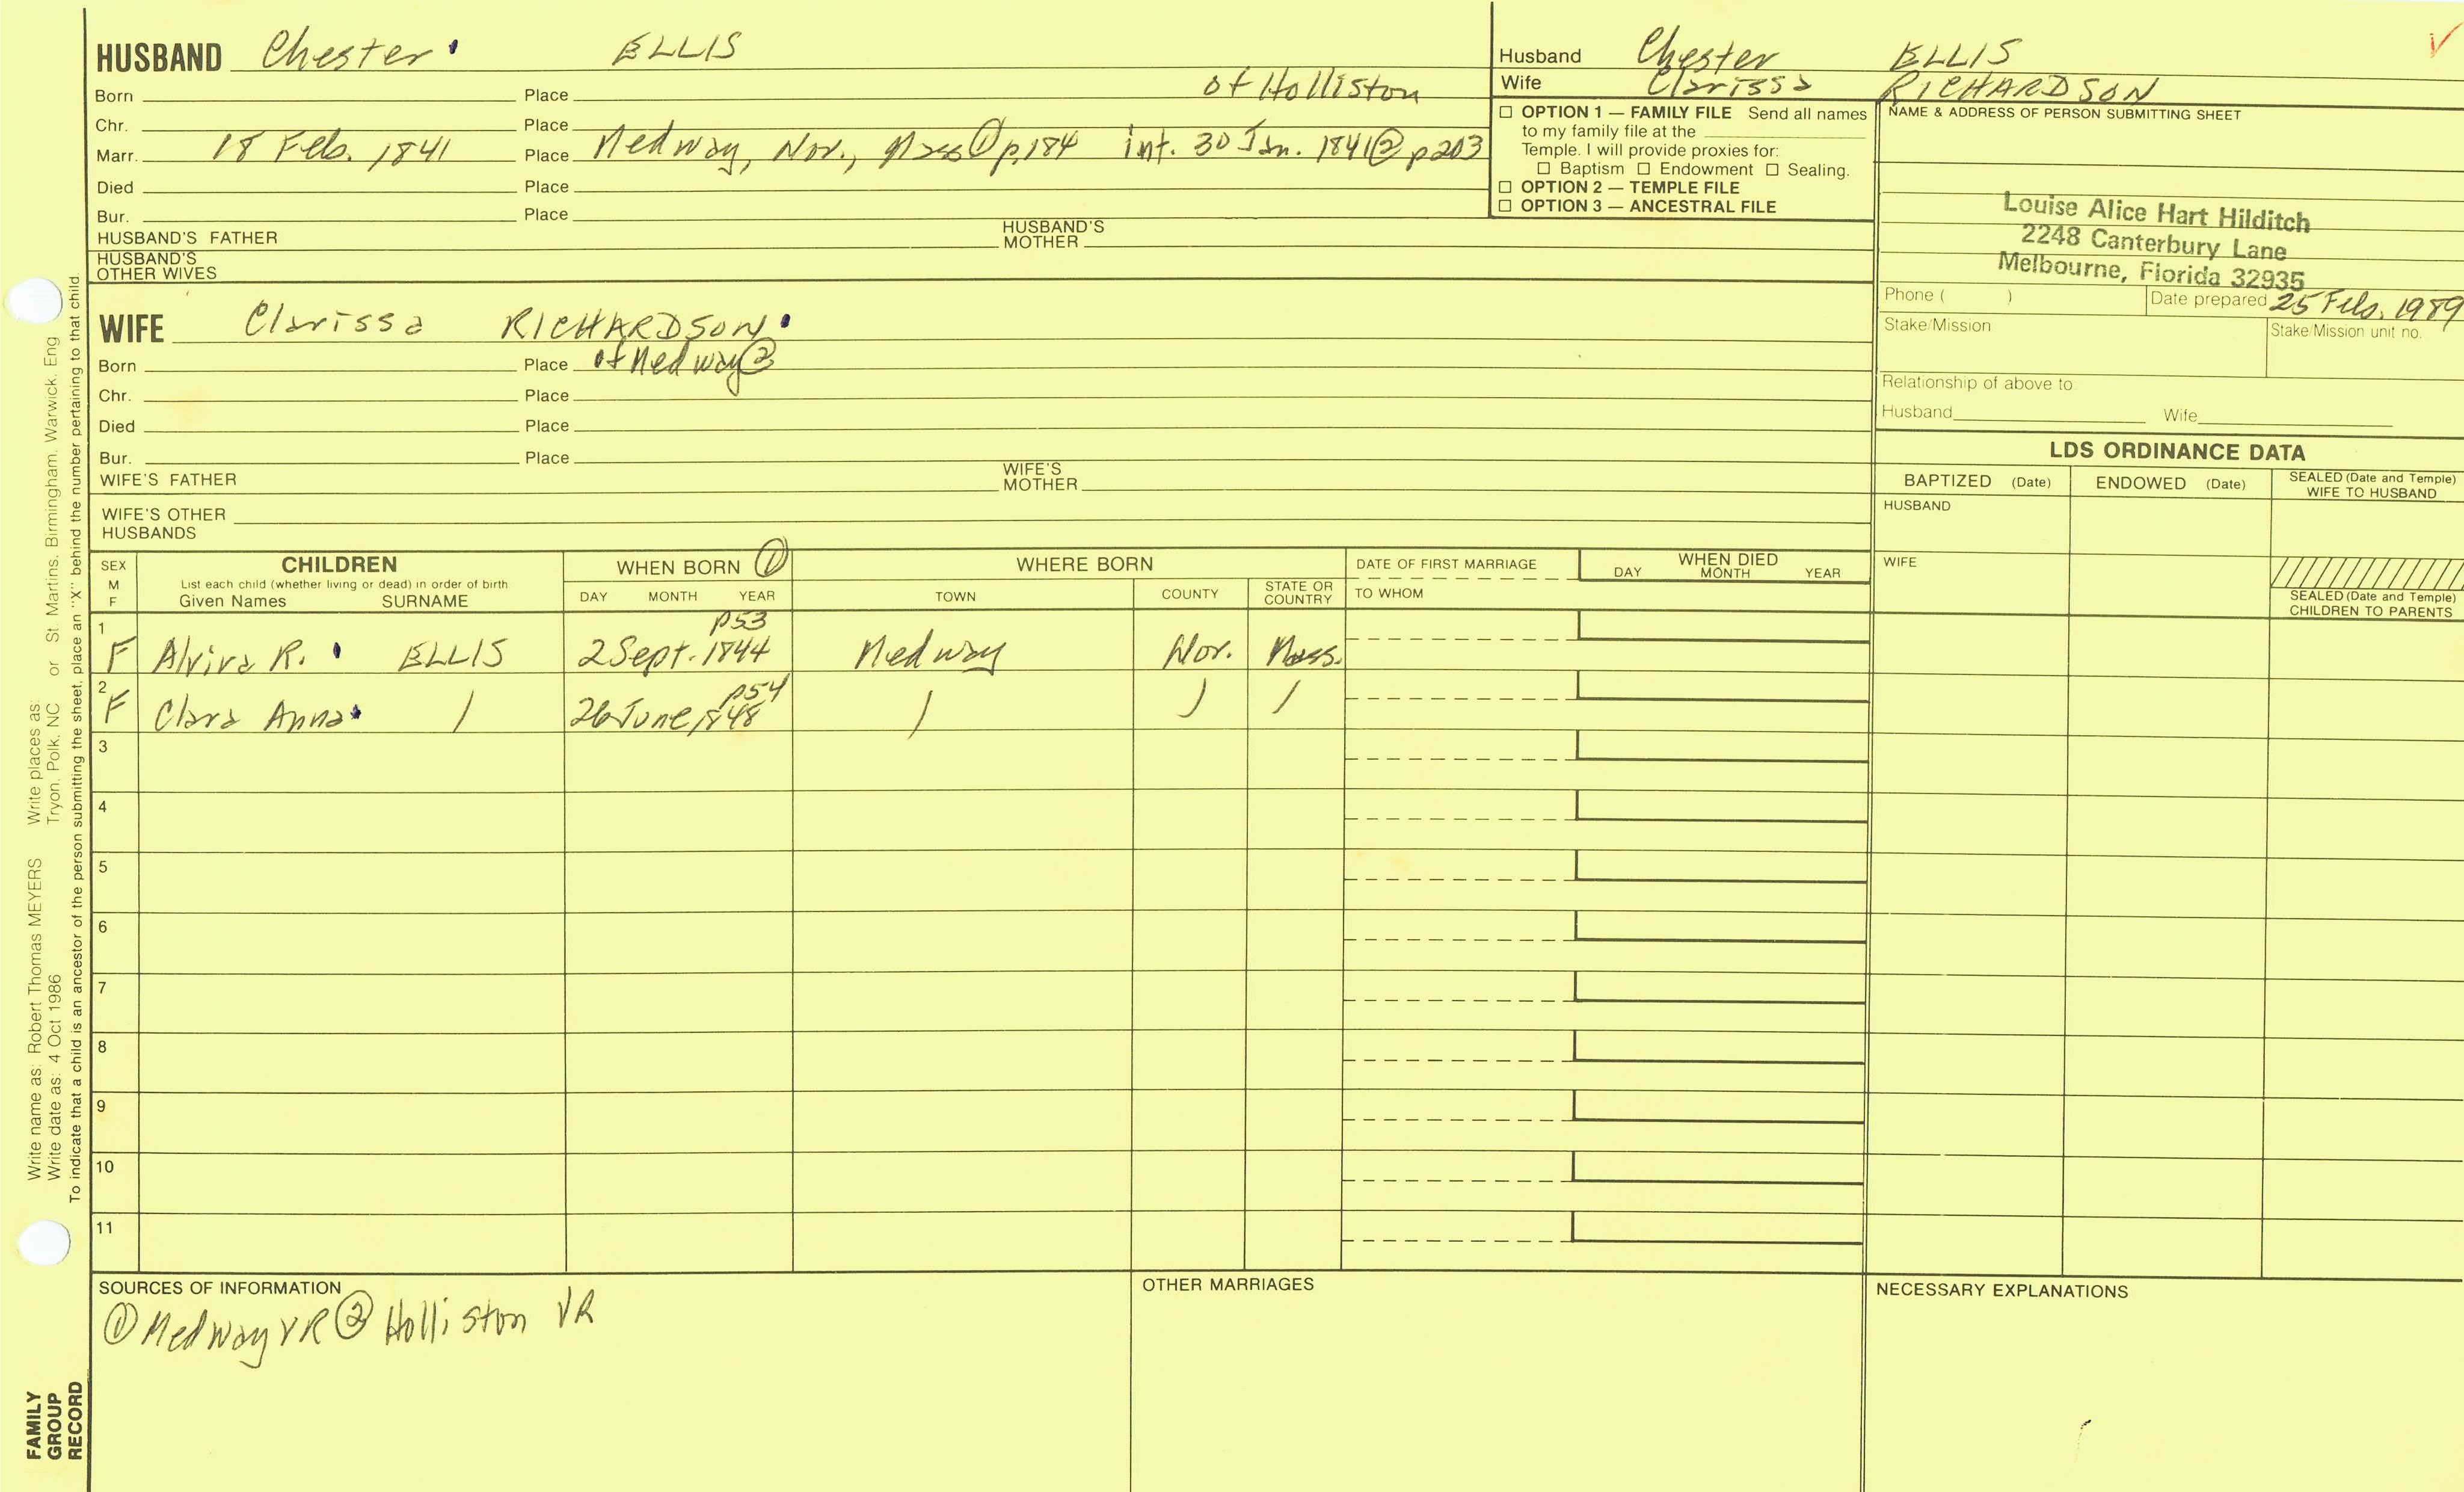 HUSBAND Chester ELLIS
Born Place of Holliston
Chr. Place
Marr. 18 Feb. 1841 Place Medway, Nor., Mass ① p.184 int. 30 Jan. 1841 ② p203
Died Place
Bur. Place
HUSBAND'S FATHER HUSBAND'S MOTHER
HUSBAND'S OTHER WIVES
Husband Chester ELLIS
Wife Clarissa RICHARDSON
☐ OPTION 1 — FAMILY FILE Send all names
to my family file at the
Temple. I will provide proxies for:
☐ Baptism ☐ Endowment ☐ Sealing.
☐ OPTION 2 — TEMPLE FILE
☐ OPTION 3 — ANCESTRAL FILE
NAME & ADDRESS OF PERSON SUBMITTING SHEET
Louise Alice Hart Hilditch
2248 Canterbury Lane
Melbourne, Florida 32935
Phone ( ) Date prepared 25 Feb. 1989
Stake/Mission Stake/Mission unit no.
Relationship of above to
Husband Wife
WIFE Clarissa RICHARDSON
Born Place of Medway ②
Chr. Place
Died Place
Bur. Place
WIFE'S FATHER WIFE'S MOTHER
WIFE'S OTHER HUSBANDS
LDS ORDINANCE DATA
BAPTIZED (Date) ENDOWED (Date) SEALED (Date and Temple) WIFE TO HUSBAND
HUSBAND
WIFE
SEALED (Date and Temple) CHILDREN TO PARENTS
SEX M F
CHILDREN
List each child (whether living or dead) in order of birth
Given Names SURNAME
WHEN BORN ①
DAY MONTH YEAR
WHERE BORN
TOWN COUNTY STATE OR COUNTRY
DATE OF FIRST MARRIAGE
TO WHOM
WHEN DIED
DAY MONTH YEAR
p53
1 F Alvira R. ELLIS 2 Sept. 1844 Medway Nor. Mass.
p54
2 F Clara Anna / 26 June 1848 / / /
3
4
5
6
7
8
9
10
11
SOURCES OF INFORMATION
① Medway VR ② Holliston VR
OTHER MARRIAGES
NECESSARY EXPLANATIONS
Write name as: Robert Thomas MEYERS Write places as:
Write date as: 4 Oct 1986 Tryon, Polk, NC or St. Martins, Birmingham, Warwick, Eng
To indicate that a child is an ancestor of the person submitting the sheet, place an "X" behind the number pertaining to that child
FAMILY
GROUP
RECORD